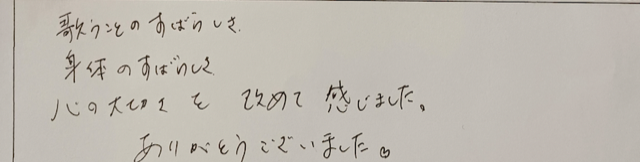 歌うことのすばらしさ
身体のすばらしさ
心の大切さを 改めて 感じました。
ありがとうございました。